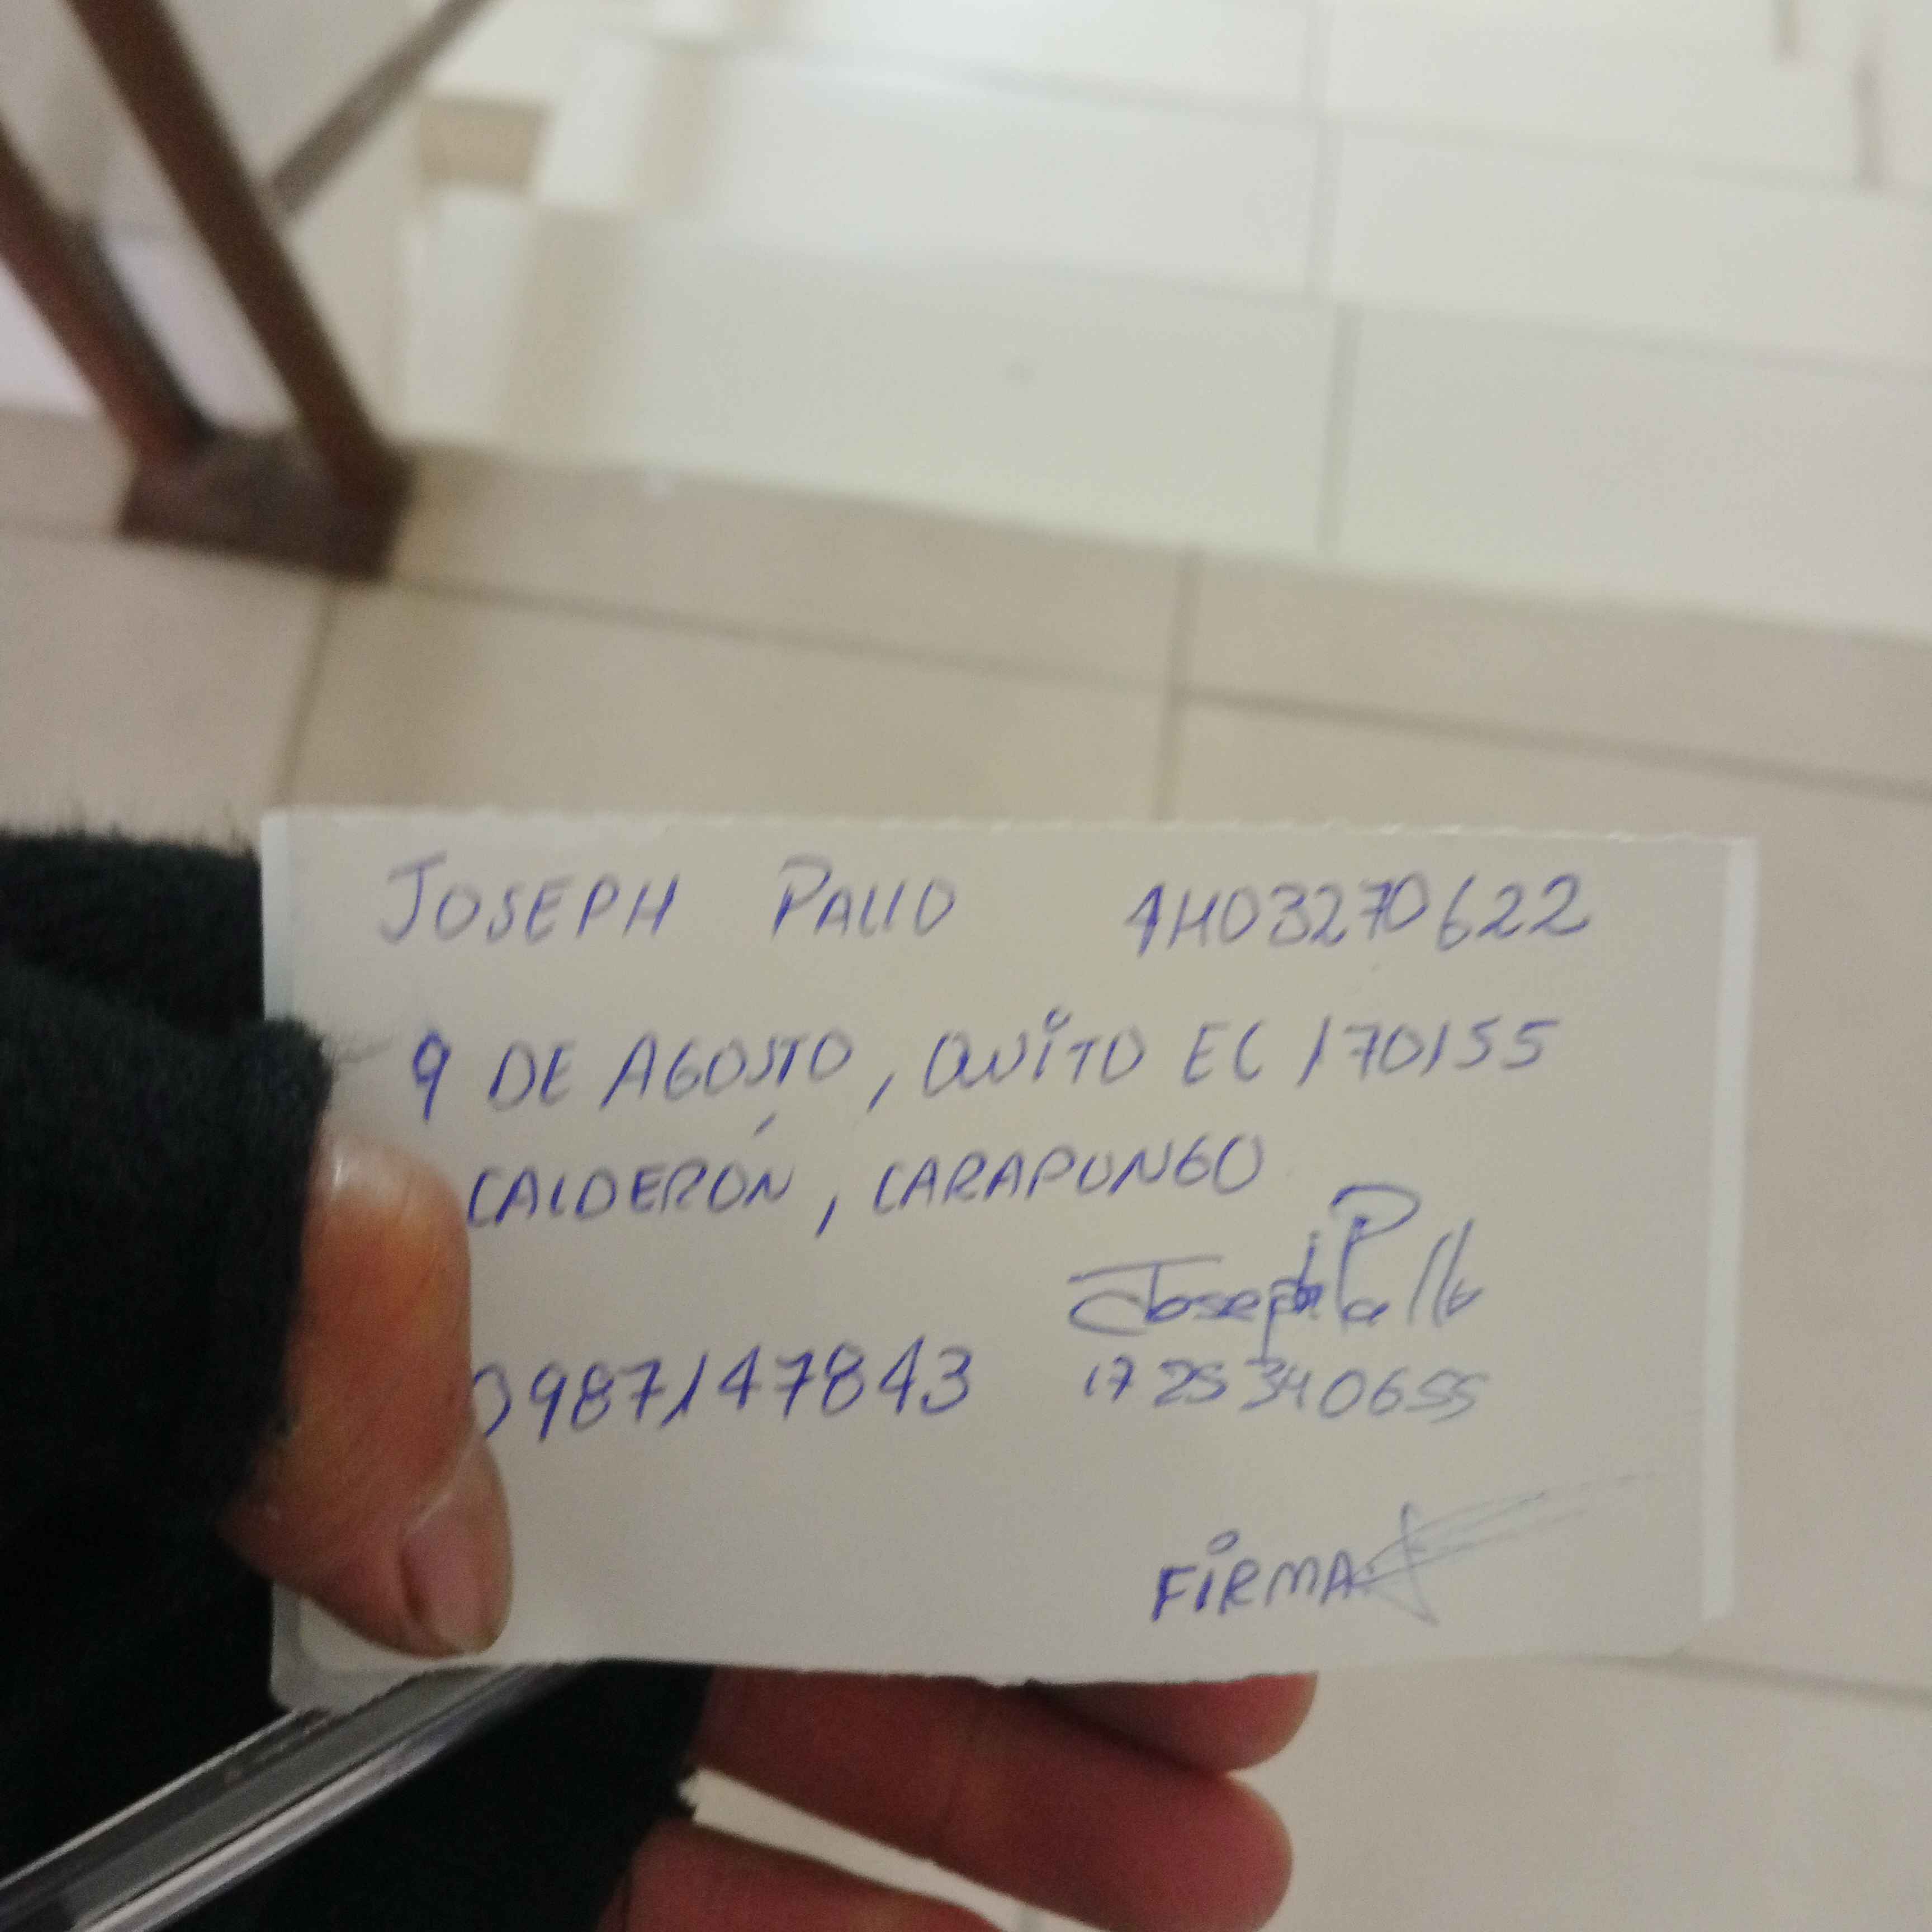 JOSEPH PALLO 1H03270622
9 DE AGOSTO, QUITO EC 170155
CALDERÓN, CARAPUNGO
Joseph Pallo
0987147843 1725340655
FIRMA